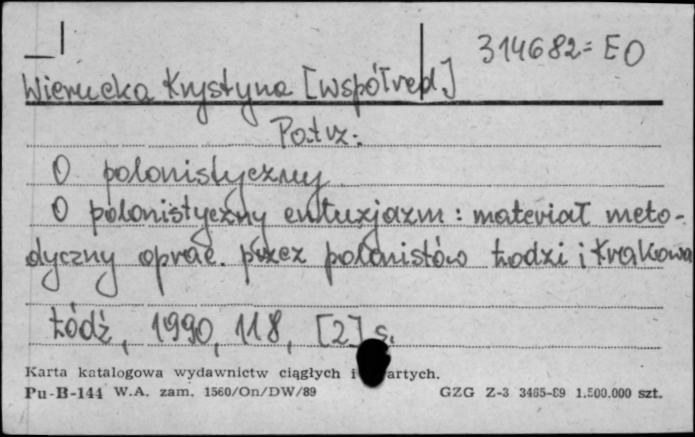 314682 = EO
Wierucka Krystyna [współred]
Patrz:
O polonistyczny
O polonistyczny entuzjazm : materiał meto-
dyczny oprac. przez polonistów Łodzi i Krakowa
Łódź, 1990, 118, [2] s.
Karta katalogowa wydawnictw ciągłych i artych.
Pu-B-144 W.A. zam. 1560/On/DW/89 GZG Z-3 3465-89 1.500.000 szt.